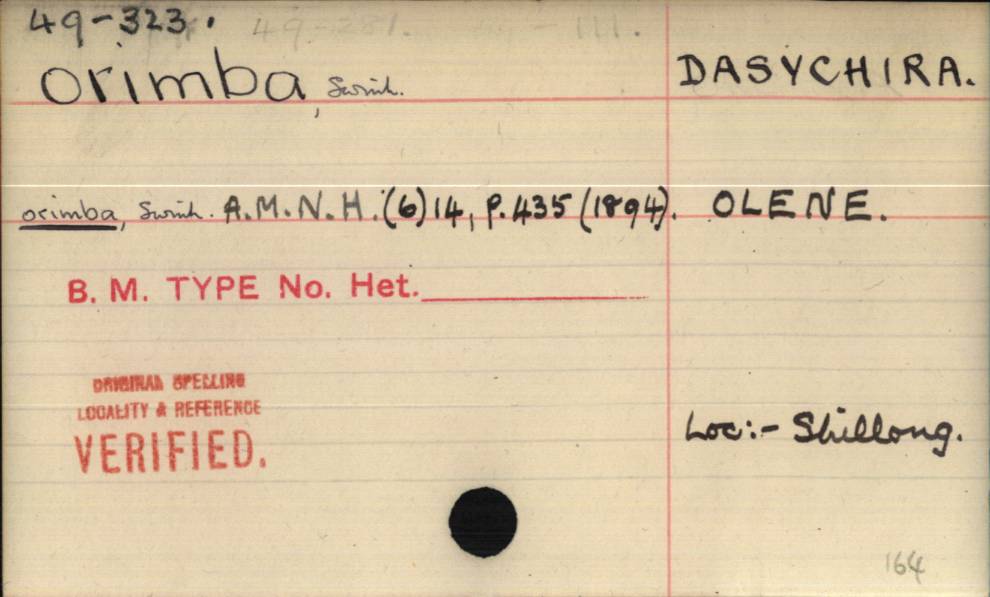 49-323.
49-281. - 111.
orimba, Swinh. DASYCHIRA.
orimba, Swinh. A.M.N.H. (6) 14, p. 435 (1894). OLENE.
B. M. TYPE No. Het.
ORIGINAL SPELLING
LOCALITY & REFERENCE
VERIFIED.
Loc:- Shillong.
164